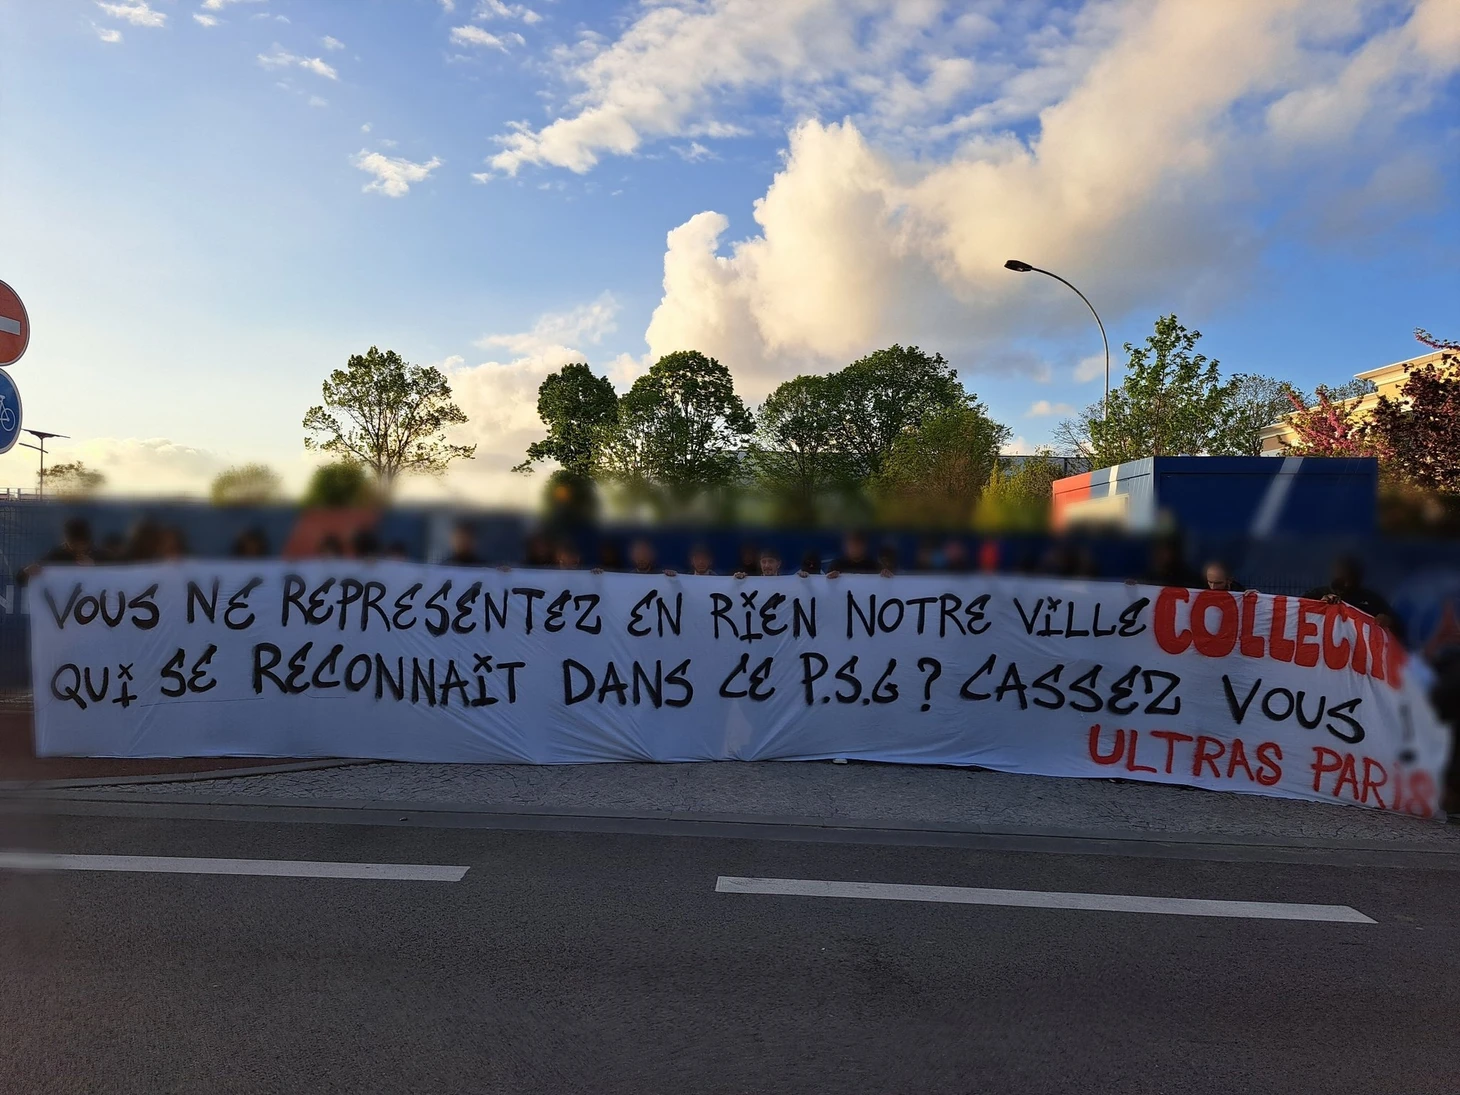 VOUS NE REPRESENTEZ EN RIEN NOTRE VILLE
QUI SE RECONNAÎT DANS CE P.S.G ? CASSEZ VOUS
COLLECTIF
ULTRAS PARIS